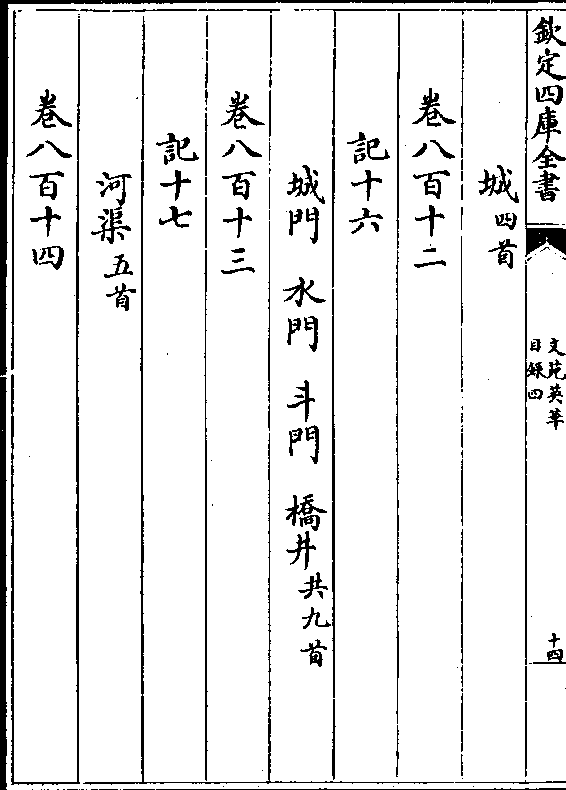 欽定四庫全書
文苑英華
目錄四
十四
城四首
卷八百十二
記十六
城門　水門　斗門　橋井共九首
卷八百十三
記十七
河渠五首
卷八百十四